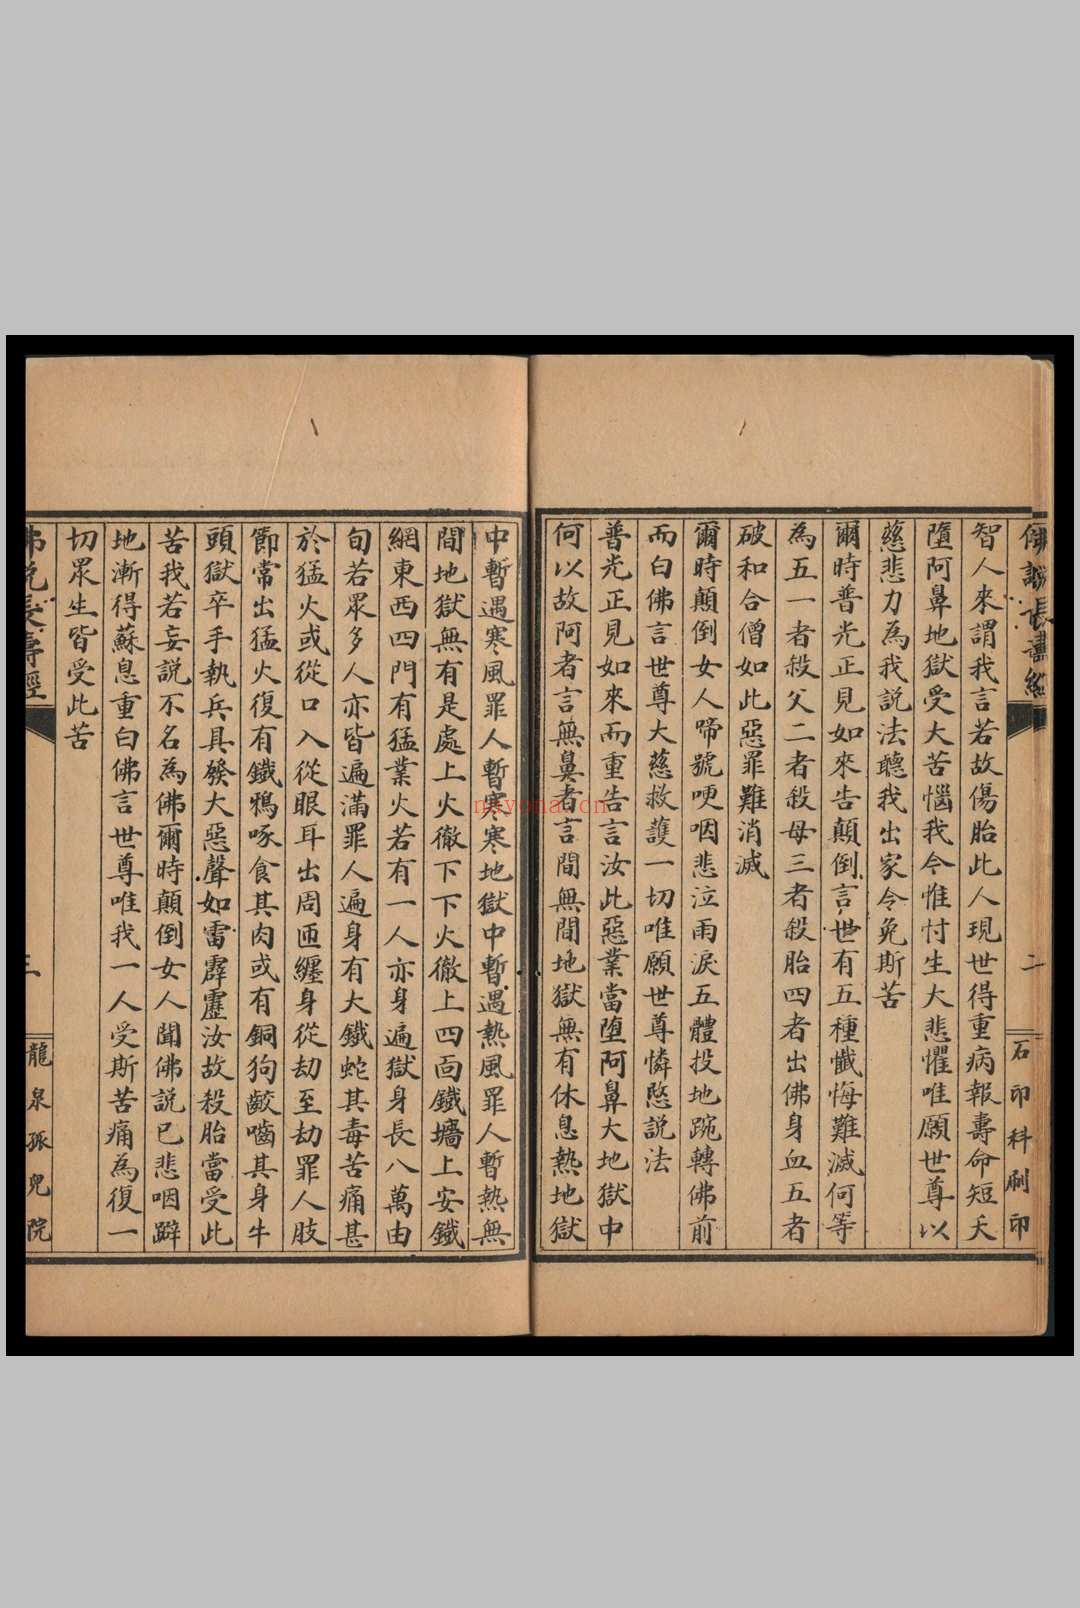 佛說長壽經
二
石印科刷印
智人來謂我言若故傷胎此人現世得重病報壽命短夭
墮阿鼻地獄受大苦惱我今惟忖生大悲懼唯願世尊以
慈悲力為我說法聽我出家令免斯苦
爾時普光正見如來告顛倒言世有五種懺悔難滅何等
為五一者殺父二者殺母三者殺胎四者出佛身血五者
破和合僧如此惡罪難消滅
爾時顛倒女人啼號哽咽悲泣雨淚五體投地踠轉佛前
而白佛言世尊大慈救護一切唯願世尊憐愍說法
普光正見如來而重告言汝此惡業當堕阿鼻大地獄中
何以故阿者言無鼻者言間無間地獄無有休息熱地獄
中暫遇寒風罪人暫寒寒地獄中暫遇熱風罪人暫熱無
間地獄無有是處上火徹下下火徹上四面鐵墻上安鐵
網東西四門有猛業火若有一人亦身遍獄身長八萬由
旬若眾多人亦皆遍滿罪人遍身有大鐵蛇其毒苦痛甚
於猛火或從口入從眼耳出周匝纏身從劫至劫罪人肢
節常出猛火復有鐵鴉啄食其肉或有銅狗齩嚙其身牛
頭獄卒手執兵具發大惡聲如雷霹靂汝故殺胎當受此
苦我若妄説不名為佛爾時顛倒女人聞佛説已悲咽躃
地漸得蘇息重白佛言世尊唯我一人受斯苦痛為復一
切眾生皆受此苦
佛說長壽經
三
龍泉孤兒院
nayona.cn